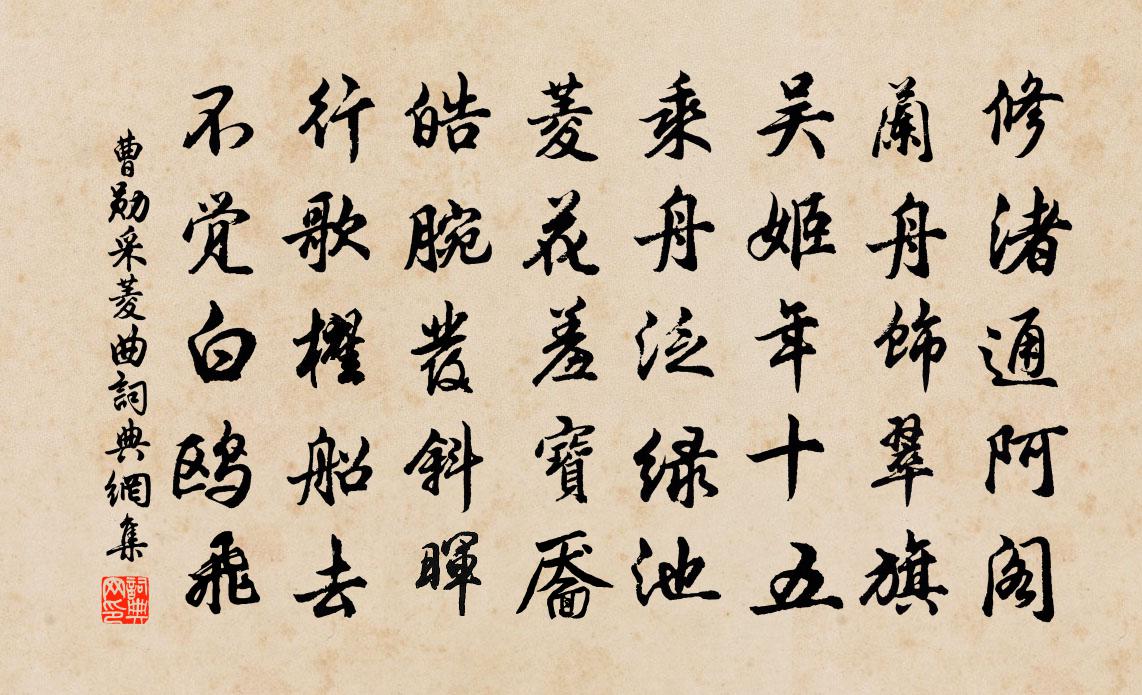 修渚通阿阁
蘭舟飾翠旗
吴姬年十五
乘舟泛绿池
菱花羞寶靨
皓腕發斜暉
行歌櫂船去
不觉白鸥飛
曹勛采菱曲詞典網集
詞典
网印